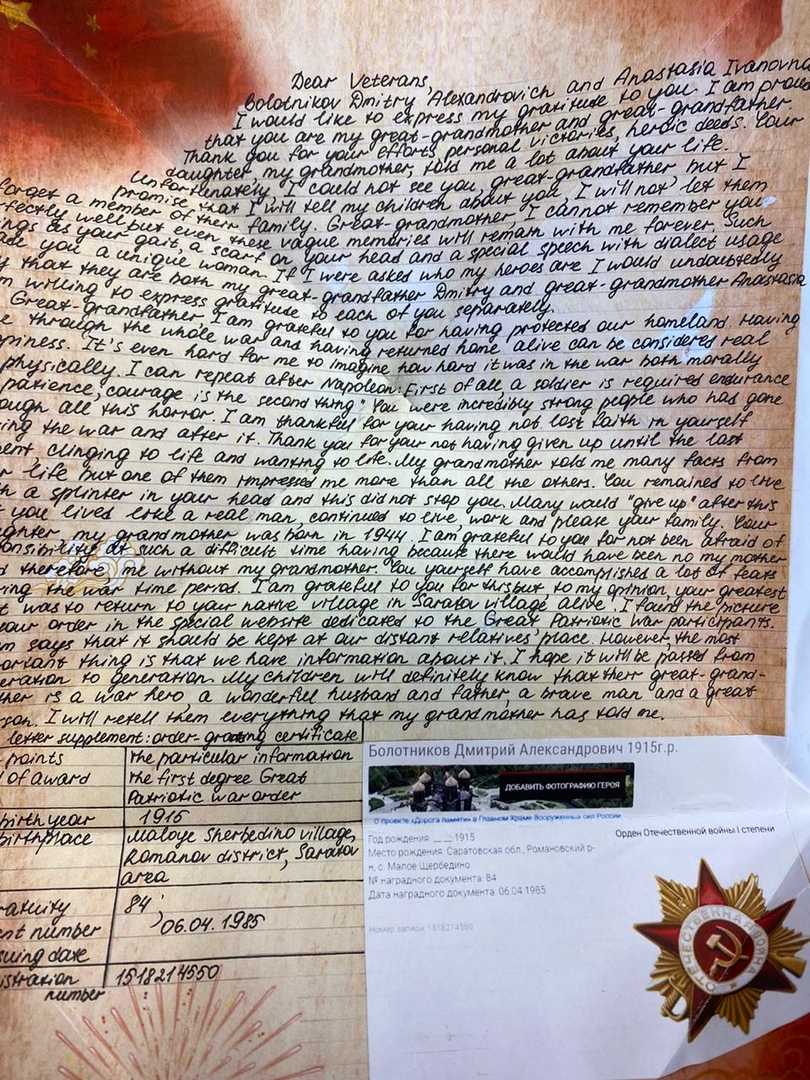 Dear Veterans,
Bolotnikov Dmitry Alexandrovich and Anastasia Ivanovna
I would like to express my gratitude to you. I am proud
that you are my great-grandmother and great-grandfather.
Thank you for your efforts, personal victories, heroic deeds. Your
daughter, my grandmother, told me a lot about your life.
Unfortunately, I could not see you, great-grandfather but I
promise that I will tell my children about you, I will not let them
forget a member of their family. Great-grandmother, I cannot remember you
fectly well but even these vague memories will remain with me forever. Such
ings as your gait, a scarf on your head and a special speech with dialect usage
ade you a unique woman. If I were asked who my heroes are I would undoubtedly
y that they are both my great-grandfather Dmitry and great-grandmother Anastasia
m willing to express gratitude to each of you separately.
Great-grandfather I am grateful to you for having protected our homeland. Having
e through the whole war and having returned home alive can be considered real
ppiness. It's even hard for me to imagine how hard it was in the war both morally
physically. I can repeat after Napoleon: First of all, a soldier is required endurance
patience, courage is the second thing" You were incredibly strong people who had gone
ough all this horror. I am thankful for your having not lost faith in yourself
ring the war and after it. Thank you for your not having given up until the last
ent, clinging to life and wanting to life. My grandmother told me many facts from
r life but one of them impressed me more than all the others. You remained to live
h a splinter in your head and this did not stop you. Many would "give up" after this
t you lived like a real man, continued to live, work and please your family. Your
ughter, my grandmother was born in 1944. I am grateful to you for not been afraid of
onsibility at such a difficult time having because there would have been no my mother
d therefore me without my grandmother. You yourself have accomplished a lot of feats
ring the war time period. I am grateful to you for this but, to my opinion, your greatest
t was to return to your native village in Saratov village alive. I found the picture
our order in the special website dedicated to the Great Patriotic War participants.
m says that it should be kept at our distant relatives' place. However, the most
ortant thing is that we have information about it. I hope it will be passed from
eration to generation. My children will definitely know that their great-grand-
ther is a war hero, a wonderful husband and father, a brave man and a great
son. I will retell them everything that my grandmother has told me.
letter supplement: order-grading certificate
points the particular information
of award the first degree Great
Patriotic war order
birth year 1915
birthplace Maloye Sherbedino village,
Romanov district, Saratov
area
ratuity 84
ent number 06.04.1985
suing date
istration 1518214550
number
Болотников Дмитрий Александрович 1915г.р.
ДОБАВИТЬ ФОТОГРАФИЮ ГЕРОЯ
О проекте «Дорога памяти» в Главном Храме Вооруженных сил России
Год рождения: __.__.1915
Место рождения: Саратовская обл., Романовский р-
н, с. Малое Щербедино
№ наградного документа: 84
Дата наградного документа: 06.04.1985
Номер записи: 1518214550
Орден Отечественной войны I степени
ОТЕЧЕСТВЕННАЯ ВОЙНА